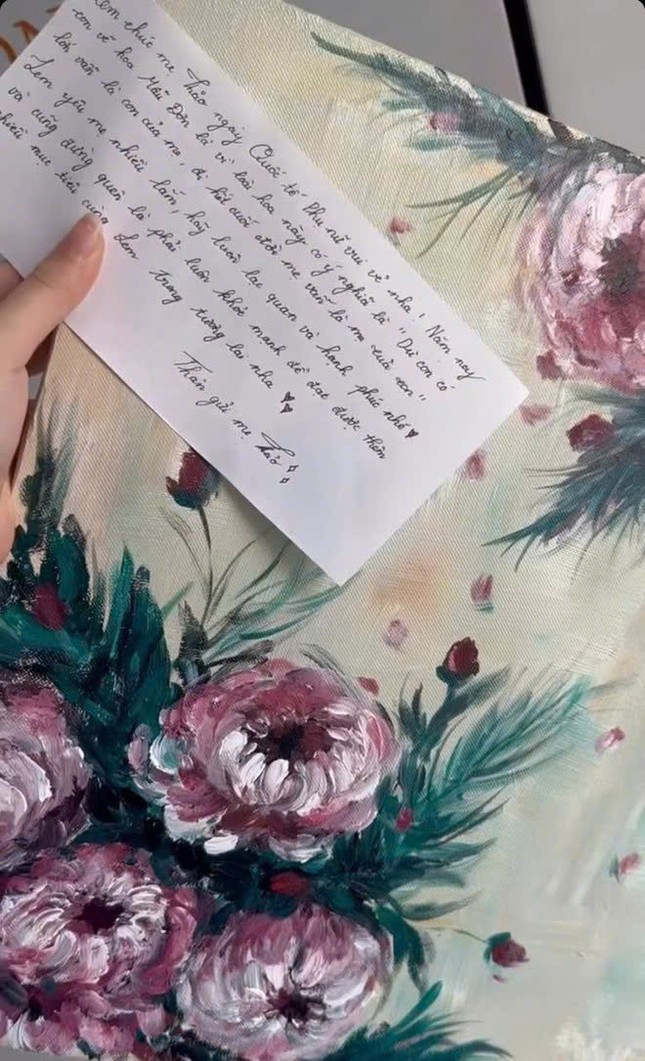 Zem chúc mẹ Thảo ngày Quốc tế Phụ nữ vui vẻ nha! Năm nay
con vẽ hoa Mẫu Đơn là vì loài hoa này có ý nghĩa là "Dù con có
lớn vẫn là con của mẹ, đi hết cuộc đời mẹ vẫn là mẹ của con"
Zem yêu mẹ nhiều lắm, hãy luôn lạc quan và hạnh phúc nhé ♥
và cũng đừng quên là phải luôn khỏe mạnh để đạt được thêm
nhiều mục tiêu cùng Zem trong tương lai nha ♥♥
Thân gửi mẹ Thảo